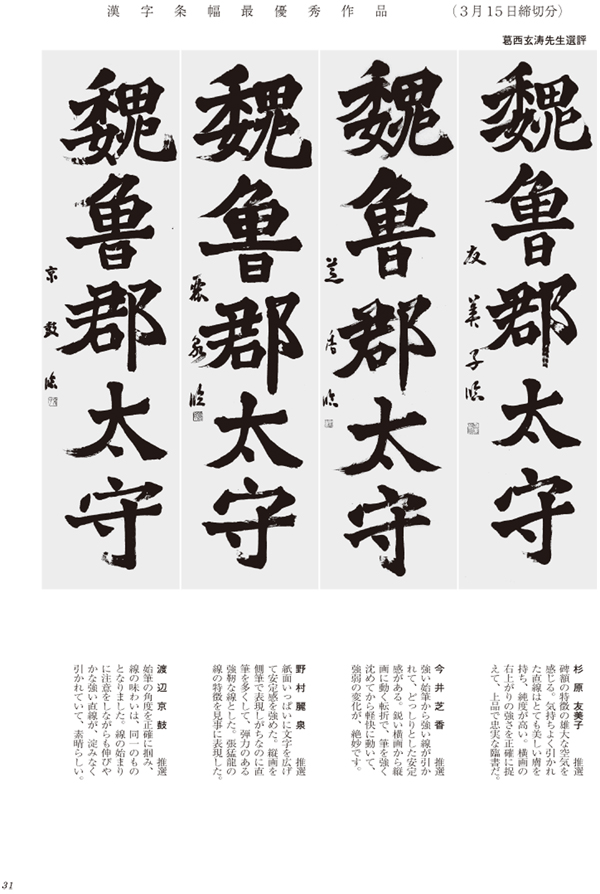 漢字条幅最優秀作品
(３月１５日締切分)
葛西玄涛先生選評
魏魯郡太守
友美子臨
魏魯郡太守
芝香臨
魏魯郡太守
麗泉臨
魏魯郡太守
京鼓臨
杉原友美子　推選
碑額の特徴の雄大な空気を
感じる。気持ちよく引かれ
た直線はとても美しい膚を
持ち、純度が高い。横画の
右上がりの強さを正確に捉
えて、上品で忠実な臨書だ。
今井芝香　推選
強い始筆から強い線が引か
れて、どっしりとした安定
感がある。鋭い横画から縦
画に動く転折で、筆を強く
沈めてから軽快に動いて、
強弱の変化が、絶妙です。
野村麗泉　推選
紙面いっぱいに文字を広げ
て安定感を強めた。縦画を
側筆で表現しがちなのに直
筆を多くして、弾力のある
強靭な線とした。張猛龍の
線の特徴を見事に表現した。
渡辺京鼓　推選
始筆の角度を正確に掴み、
線の味わいは、同一のもの
となりました。線の始まり
に注意をしながらも伸びや
かな強い直線が、淀みなく
引かれていて、素晴らしい。
31